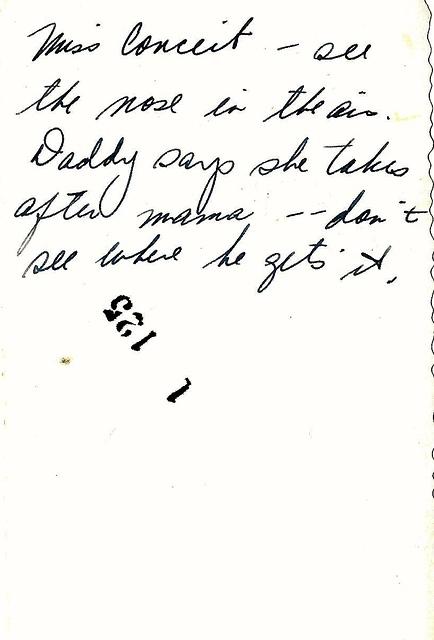 Miss Conceit - see
the nose in the air.
Daddy says she takes
after mama -- don't
see where he gets it.
125
1